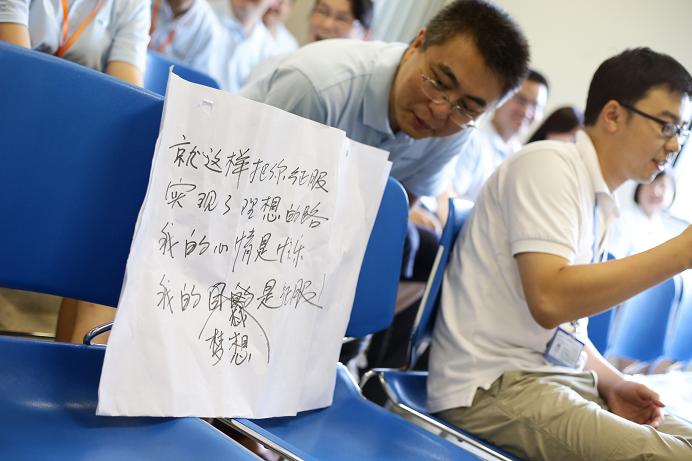 就这样把你征服
实现了理想的路
我的心情是快乐
我的是征服!
梦想